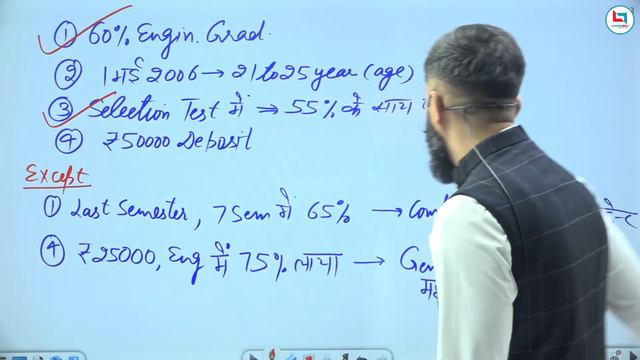 ① 60% Engin. Grad.
② 1 मई 2006 → 21 to 25 year (age)
③ Selection Test में ⇒ 55% के साथ
④ ₹50000 Deposit
Except
① Last Semester, 7 Sem में 65% →
④ ₹25000, Eng में 75% लाया →